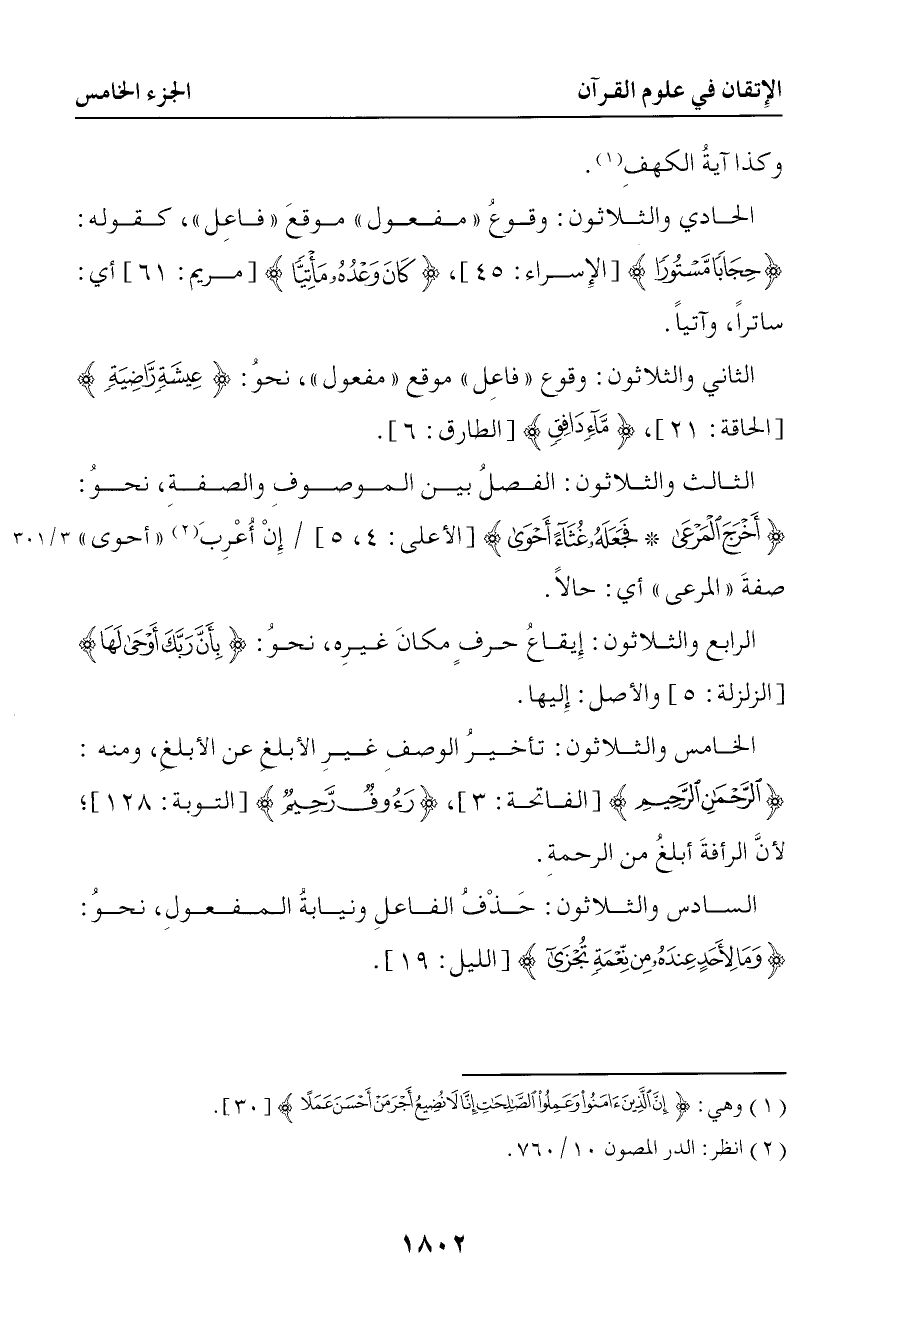 الإتقان في علوم القرآن
الجزء الخامس
وكذا آيةُ الكهفِ(١).
الحادي والثلاثون: وقوعُ «مفعول» موقعَ «فاعِل»، كقوله:
﴿حِجَابًا مَّسْتُورًا﴾ [الإسراء: ٤٥]، ﴿كَانَ وَعْدُهُۥ مَأْتِيًّا﴾ [مريم: ٦١] أي:
ساتراً، وآتياً.
الثاني والثلاثون: وقوع «فاعِل» موقع «مفعول»، نحوُ: ﴿عِيشَةٍ رَّاضِيَةٍ﴾
[الحاقة: ٢١]، ﴿مَّآءٍ دَافِقٍ﴾ [الطارق: ٦].
الثالث والثلاثون: الفصلُ بين الموصوفِ والصفة، نحوُ:
﴿أَخْرَجَ ٱلْمَرْعَىٰ * فَجَعَلَهُۥ غُثَآءً أَحْوَىٰ﴾ [الأعلى: ٤، ٥] / إنْ أُعْرِبَ(٢) «أحوى» ٣٠١/٣
صفةَ «المرعى» أي: حالاً.
الرابع والثلاثون: إيقاعُ حرفٍ مكانَ غيرِه، نحوُ: ﴿بِأَنَّ رَبَّكَ أَوْحَىٰ لَهَا﴾
[الزلزلة: ٥] والأصل: إليها.
الخامس والثلاثون: تأخيرُ الوصفِ غيرِ الأبلغِ عن الأبلغِ، ومنه :
﴿ٱلرَّحْمَٰنِ ٱلرَّحِيمِ﴾ [الفاتحة: ٣]، ﴿رَءُوفٌ رَّحِيمٌ﴾ [التوبة: ١٢٨]؛
لأنَّ الرأفةَ أبلغُ من الرحمةِ.
السادس والثلاثون: حَذْفُ الفاعلِ ونيابةُ المفعولِ، نحوُ:
﴿وَمَا لِأَحَدٍ عِندَهُۥ مِن نِّعْمَةٍ تُجْزَىٰٓ﴾ [الليل: ١٩].
(١) وهي: ﴿إِنَّ ٱلَّذِينَ ءَامَنُوا۟ وَعَمِلُوا۟ ٱلصَّٰلِحَٰتِ إِنَّا لَا نُضِيعُ أَجْرَ مَنْ أَحْسَنَ عَمَلًا﴾ [٣٠].
(٢) انظر: الدر المصون ١٠/٧٦٠.
١٨٠٢